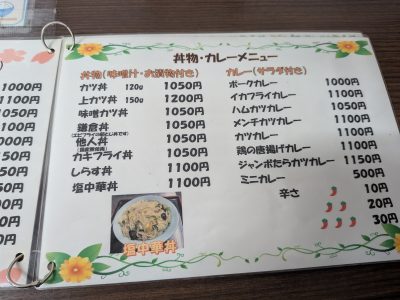 丼物・カレーメニュー
丼物(味噌汁・お漬物付き)
カツ丼 120g 1050円
上カツ丼 150g 1200円
味噌カツ丼 1050円
鎌倉丼 1050円
(エビフライの卵とじ丼です)
他人丼 1050円
カキフライ丼 1050円
しらす丼 1100円
塩中華丼 1100円
塩中華丼
カレー(サラダ付き)
ポークカレー 1000円
イカフライカレー 1100円
ハムカツカレー 1050円
メンチカツカレー 1100円
カツカレー 1100円
鶏の唐揚げカレー 1100円
ジャンボたらカツカレー 1150円
ミニカレー 500円
辛さ 10円
20円
30円
1000円
1100円
1050円
1100円